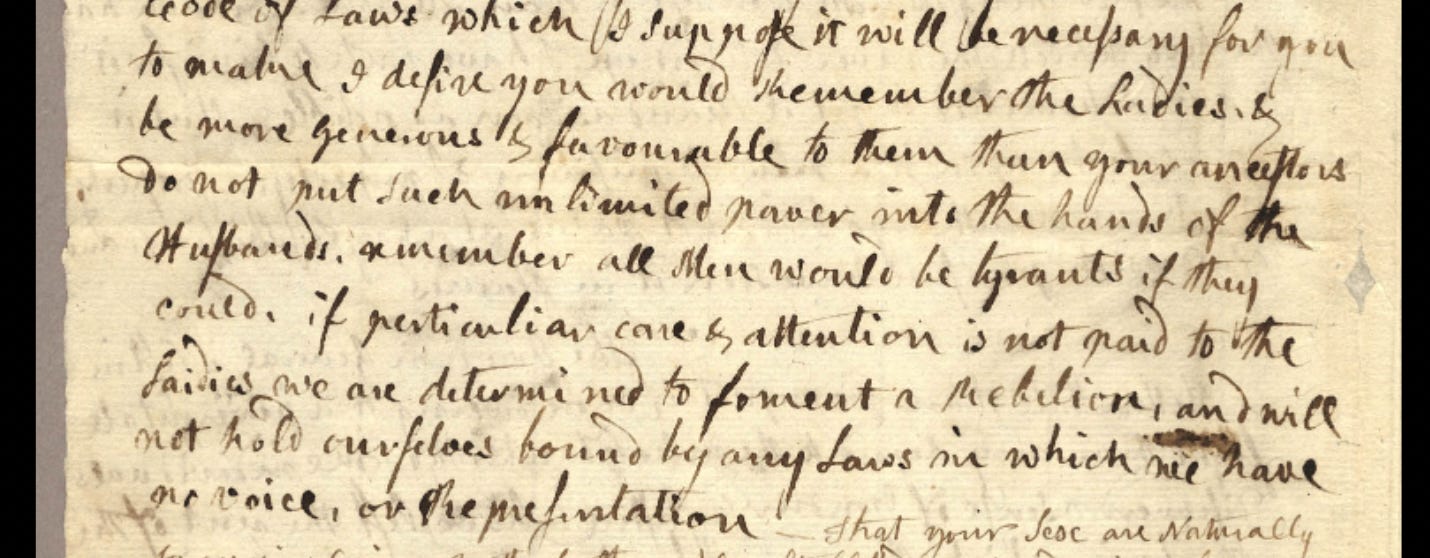 code of Laws which I suppose it will be necessary for you
to make I desire you would Remember the Ladies, &
be more generous & favourable to them than your ancestors
do not put such unlimited power into the hands of the
Husbands. remember all Men would be tyrants if they
could. if perticuliar care & attention is not paid to the
Laidies we are determined to foment a Rebelion, and will
not hold ourselves bound by any Laws in which we have
no voice, or Representation
That your Sex are Naturally